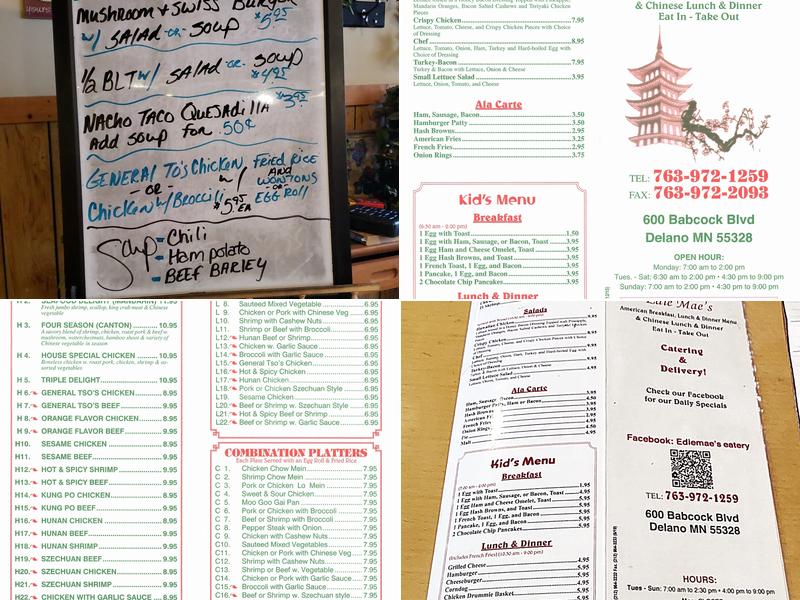 Mushroom & Swiss Burger
w/ SALAD -or- Soup $5.95
1/2 BLT w/ SALAD -or- Soup
$4.95
NACHO TACO QuesAdillA $3.95
Add soup for .50¢
GENERAL To's Chicken
-or-
Chicken w/ Broccili
w/ FRIED RICE AND WONTONS -or- EGG Roll
$5.95 EA
Soup - Chili
- Ham potato
- BEEF BARlEY
Mandarin Oranges, Bacon Salted Cashews and Teriyaki Chicken
Pieces
Crispy Chicken 7.95
Lettuce, Tomato, Cheese, and Crispy Chicken Pieces with Choice
of Dressing
Chef 8.95
Lettuce, Tomato, Onion, Ham, Turkey and Hard-boiled Egg with
Choice of Dressing
Turkey-Bacon 7.95
Turkey & Bacon with Lettuce, Onion & Cheese
Small Lettuce Salad 3.95
Lettuce, Onion, Tomato, and Cheese
Ala Carte
Ham, Sausage, Bacon 3.50
Hamburger Patty 3.50
Hash Browns 2.95
American Fries 3.25
French Fries 2.95
Onion Rings 3.75
Kid's Menu
Breakfast
(6:30 am - 2:00 pm)
1 Egg with Toast 1.50
1 Egg with Ham, Sausage, or Bacon, Toast 3.95
1 Egg Ham and Cheese Omelet, Toast 3.95
1 Egg Hash Browns, and Toast 3.95
1 French Toast, 1 Egg, and Bacon 3.95
1 Pancake, 1 Egg, and Bacon 3.95
2 Chocolate Chip Pancakes 3.95
Lunch & Dinner
& Chinese Lunch & Dinner
Eat In - Take Out
TEL: 763-972-1259
FAX: 763-972-2093
600 Babcock Blvd
Delano MN 55328
OPEN HOUR:
Monday: 7:00 am to 2:00 pm
Tues. - Sat: 6:30 am to 2:30 pm • 4:30 pm to 9:00 pm
Sunday: 7:00 am to 2:00 pm • 4:30 pm to 9:00 pm
H 2. SEAFOOD DELIGHT (MANDARIN) 11.95
Fresh jumbo shrimp, scallop, king crab meat & Chinese
vegetable
H 3. FOUR SEASON (CANTON) 10.95
A savory blend of shrimp, chicken, roast pork & beef w.
mushroom, waterchestnuts, bamboo shoot & variety of
Chinese vegetable in season
H 4. HOUSE SPECIAL CHICKEN 10.95
Boneless chicken w. roast pork, chicken, shrimp & as-
sorted vegetables
H 5. TRIPLE DELIGHT 10.95
H 6. GENERAL TSO'S CHICKEN 8.95
H 7. GENERAL TSO'S BEEF 9.95
H 8. ORANGE FLAVOR CHICKEN 8.95
H 9. ORANGE FLAVOR BEEF 9.95
H10. SESAME CHICKEN 8.95
H11. SESAME BEEF 9.95
H12. HOT & SPICY SHRIMP 9.95
H13. HOT & SPICY BEEF 9.95
H14. KUNG PO CHICKEN 8.95
H15. KUNG PO BEEF 9.95
H16. HUNAN CHICKEN 8.95
H17. HUNAN BEEF 9.95
H18. HUNAN SHRIMP 9.95
H19. SZECHUAN BEEF 9.95
H20. SZECHUAN CHICKEN 8.95
H21. SZECHUAN SHRIMP 9.95
H22. CHICKEN WITH GARLIC SAUCE 8.95
L 8. Sauteed Mixed Vegetable 6.95
L 9. Chicken or Pork with Chinese Veg 6.95
L10. Shrimp with Cashew Nuts 6.95
L11. Shrimp or Beef with Broccoli 6.95
L12. Hunan Beef or Shrimp 6.95
L13. Chicken w. Garlic Sauce 6.95
L14. Broccoli with Garlic Sauce 6.95
L15. General Tso's Chicken 6.95
L16. Hot & Spicy Chicken 6.95
L17. Hunan Chicken 6.95
L18. Pork or Chicken Szechuan Style 6.95
L19. Sesame Chicken 6.95
L20. Beef or Shrimp w. Szechuan Style 6.95
L21. Hot & Spicy Beef or Shrimp 6.95
L22. Beef or Shrimp w. Garlic Sauce 6.95
COMBINATION PLATTERS
Each Plate Served with an Egg Roll & Fried Rice
C 1. Chicken Chow Mein 7.95
C 2. Shrimp Chow Mein 7.95
C 3. Pork or Chicken Lo Mein 7.95
C 4. Sweet & Sour Chicken 7.95
C 5. Moo Goo Gai Pan 7.95
C 6. Pork or Chicken with Broccoli 7.95
C 7. Beef or Shrimp with Broccoli 7.95
C 8. Pepper Steak with Onion 7.95
C 9. Chicken with Cashew Nuts 7.95
C10. Sauteed Mixed Vegetables 7.95
C11. Chicken or Pork with Chinese Veg 7.95
C12. Shrimp with Cashew Nuts 7.95
C13. Shrimp or Beef w. Vegetable 7.95
C14. Chicken or Pork w. Garlic Sauce 7.95
C15. Broccoli with Garlic Sauce 7.95
C16. Beef or Shrimp w. Szechuan style 7.95
Salads
Crispy Chicken
Chef
Turkey-Bacon
Small Lettuce Salad
Ala Carte
Ham, Sausage, Bacon
Hamburger Patty, Ham or Bacon
Hash Browns
American Fries
French Fries
Onion Rings
Pie
Malt
Kid's Menu
Breakfast
1 Egg with Toast 1.95
1 Egg with Ham, Sausage, or Bacon, Toast 4.95
1 Egg Ham and Cheese Omelet, Toast 5.95
1 Egg Hash Browns, and Toast
1 French Toast, 1 Egg, and Bacon
1 Pancake, 1 Egg, and Bacon
2 Chocolate Chip Pancakes
Lunch & Dinner
(Includes French Fries) (10:30 am - 9:00 pm)
Grilled Cheese 4.95
Hamburger 5.95
Cheeseburger
Corndog
Chicken Drummie Basket
Edie Mae's
American Breakfast, Lunch & Dinner Menu
& Chinese Lunch & Dinner
Eat In - Take Out
Catering
&
Delivery!
Check our Facebook
for our Daily Specials
Facebook: Ediemae's eatery
TEL: 763-972-1259
600 Babcock Blvd
Delano MN 55328
HOURS:
Tues - Sun: 7:00 am to 2:30 pm • 4:30 pm to 9:00 pm